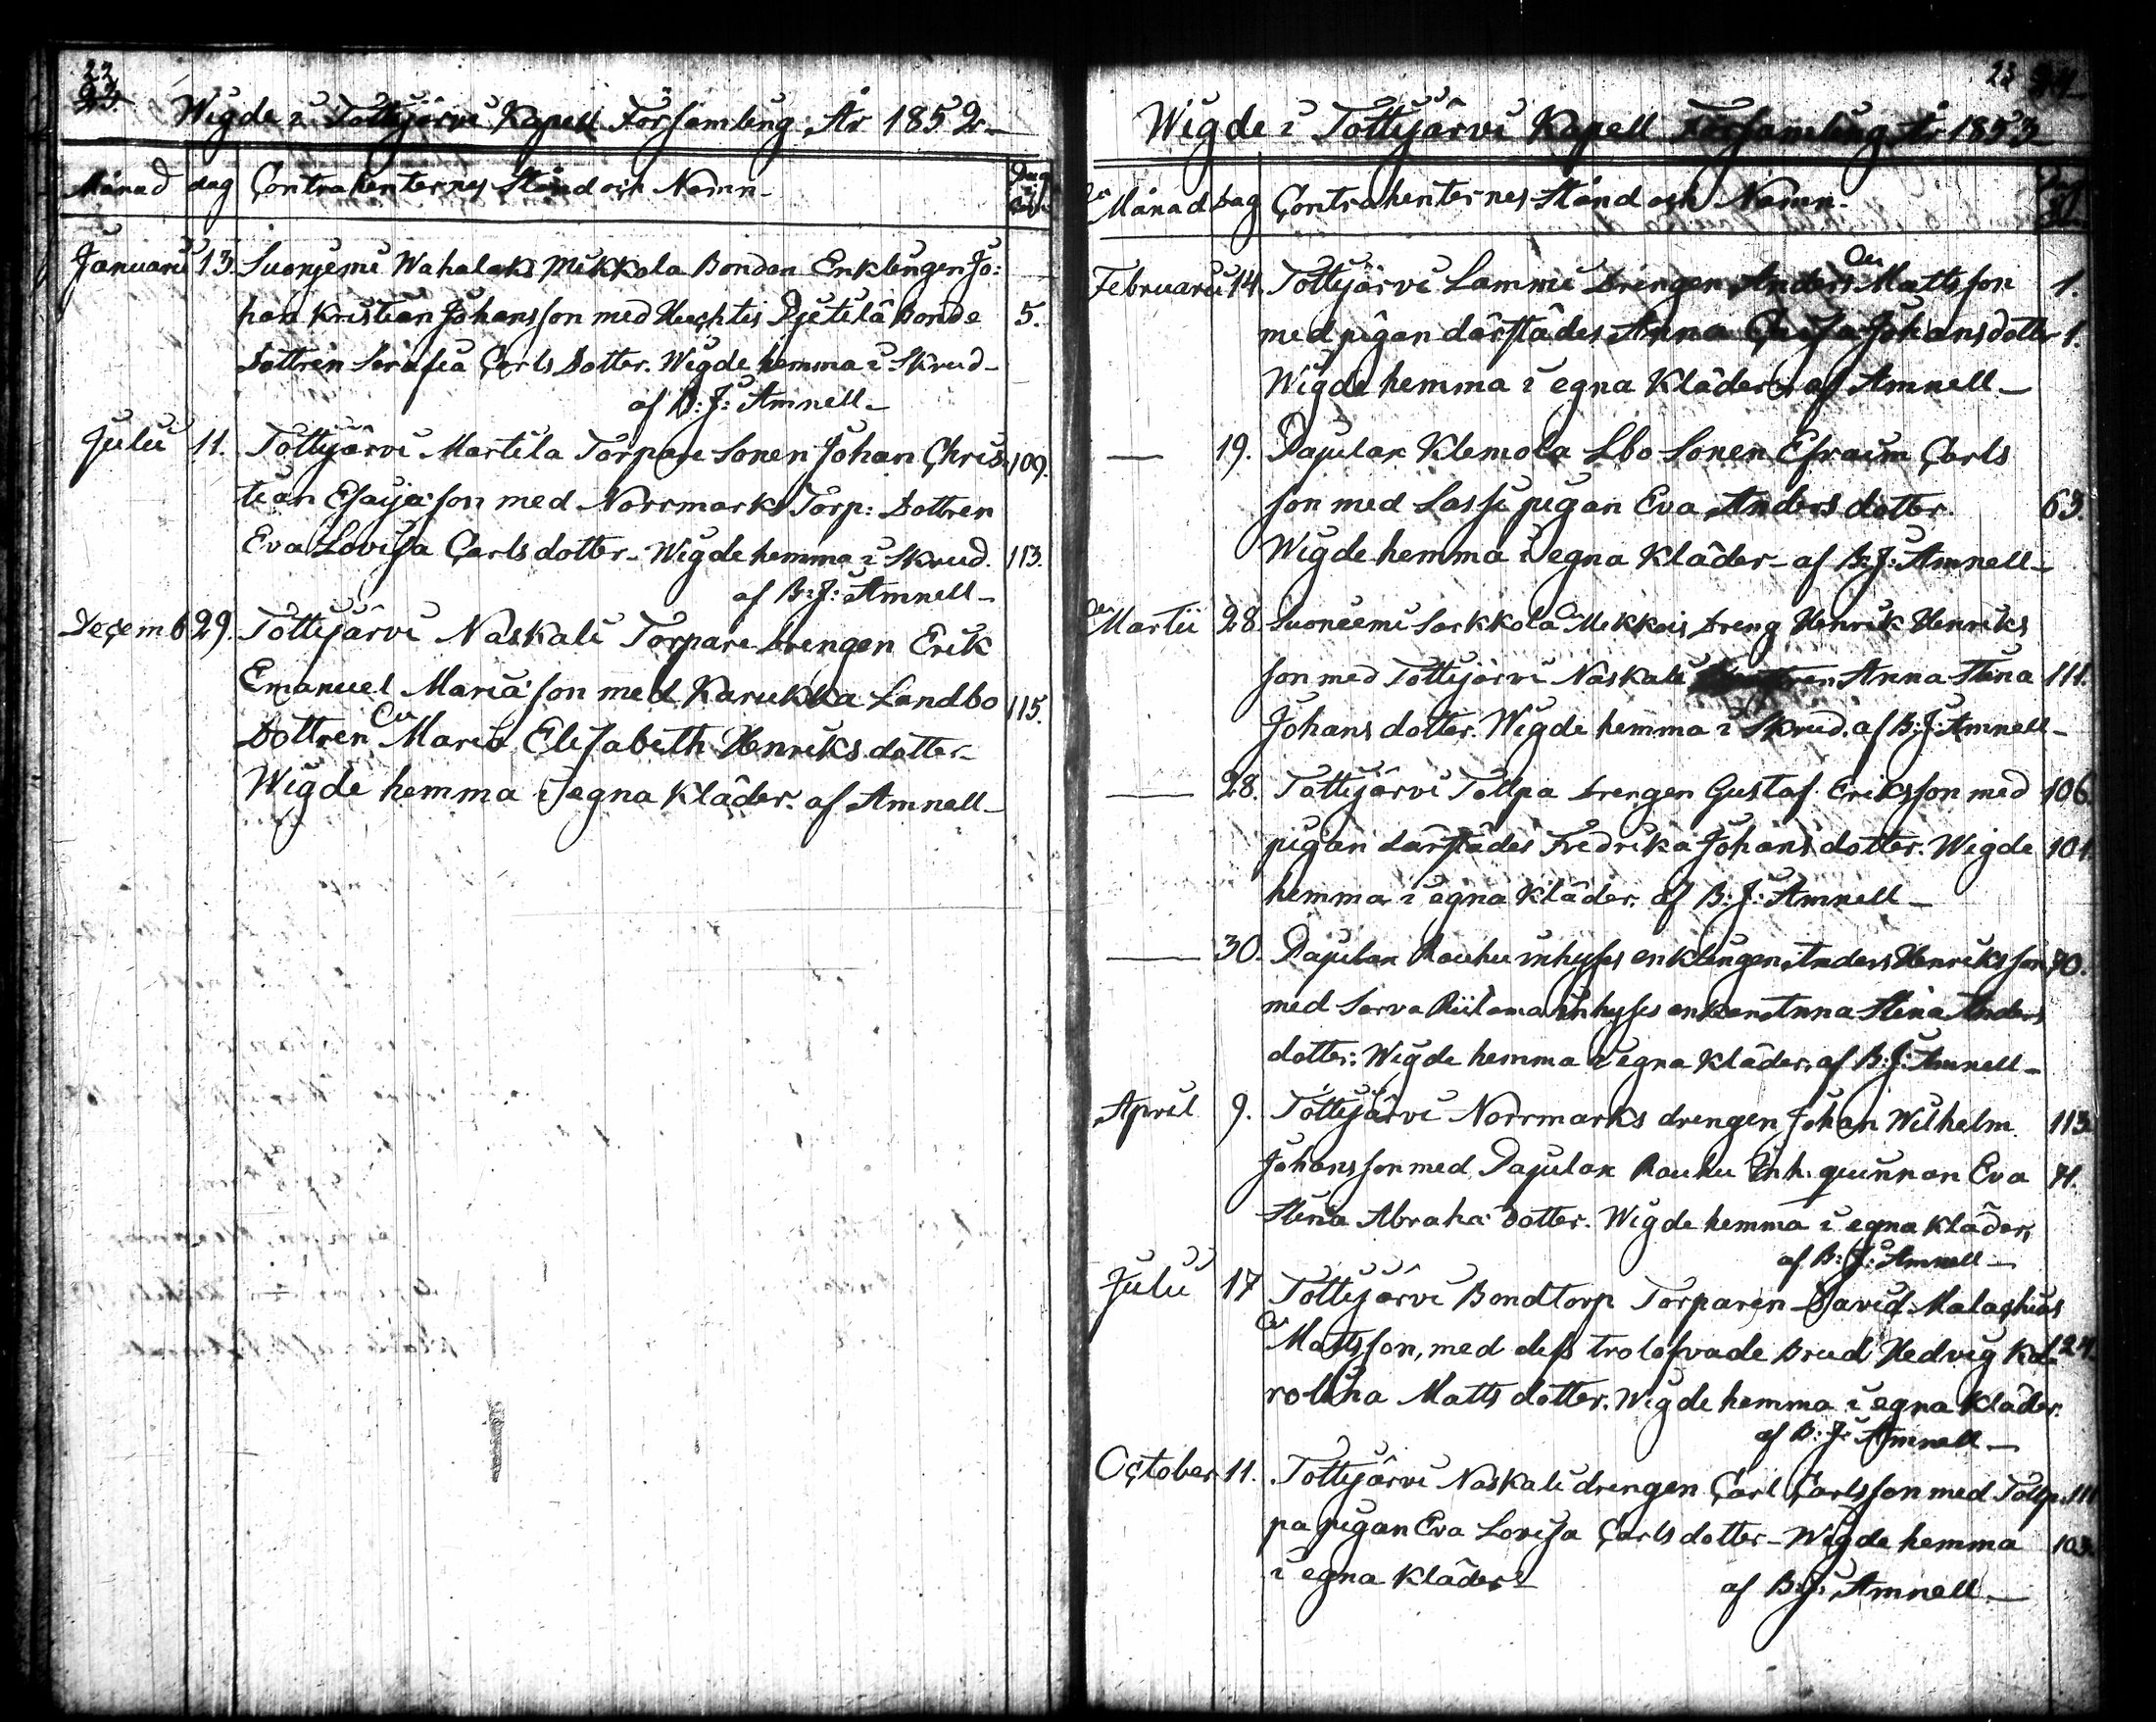 22
23
Wigde i Tottijärvi Kapell Församling År 1852
Månad dag Contrahenternes Stånd och Namn
Januarii 13. Suonjemi Wahalaks Mikkola Bondan Enklingen Jo:
han Kristian Johansson med Huchtis Pjetilä Bonde 5.
Dottren Serafia Carls Dotter. Wigde hemma i Skrud
af B: J: Amnell
Julii 11. Tottijärvi Martila Torpare Sonen Johan Chris 109.
tian Esaija son med Norrmarks Torp: Dottren
Eva Lovisa Carls dotter. Wigde hemma i Skrud. 113.
af B: J: Amnell
Decemb 29. Tottijärvi Naskali Torpare drengen Erik
Emanuel Maria son med Karukka Landbo 115.
Dottren Maria Elisabeth Henriks dotter
Wigde hemma i egna Kläder. af Amnell
23 24
Wigde i Tottijärvi Kapell Församling År 1853
Månad Dag Contrahenternes Stånd och Namn
Februarii 14. Tottijärvi Lammi Drengen Anders Mattsson 1.
med pigan därstädes Anna Caisa Johans dotter 1.
Wigde hemma i egna Kläder af Amnell
— 19. Pajulax Klemola Lbo Sonen Efraim Carls
son med Lassi pigan Eva Anders dotter 63.
Wigde hemma i egna Kläder af B: J: Amnell
Martii 28. Suoniemi Sarkkola Mekkois Dreng Henrik Henriks
son med Tottijärvi Naskali Anna Stina 111.
Johans dotter. Wigde hemma i Skrud. af B: J: Amnell
— 28. Tottijärvi Tollpa Drengen Gustaf Eriksson med 106.
pigan därstädes Fredrika Johans dotter. Wigde 101.
hemma i egna Kläder. af B: J: Amnell
— 30. Pajulax Rauhu inhyses enklingen Anders Henriksson 70.
med Sarva Riilama Inhyses enkan Anna Stina Anders
dotter: Wigde hemma i egna Kläder, af B: J: Amnell
April 9. Tottijärvi Norrmarks drengen Johan Wilhelm 113.
Johansson med Pajulax Rauhu Inh. quinnan Eva 71.
Stina Abraha dotter. Wigde hemma i egna kläder,
af B: J: Amnell
Julii 17 Tottijärvi Bondtorp Torparen David Malachias
Mattsson, med dess trolofvade Brud Hedvig Ka 124.
rolina Matts dotter. Wigde hemma i egna Kläder.
af B: J: Amnell
October 11. Tottijärvi Naskali drengen Carl Carlsson med Toll 111
pa pigan Eva Lovisa Carls dotter. Wigde hemma 103.
i egna Kläder af B: J: Amnell